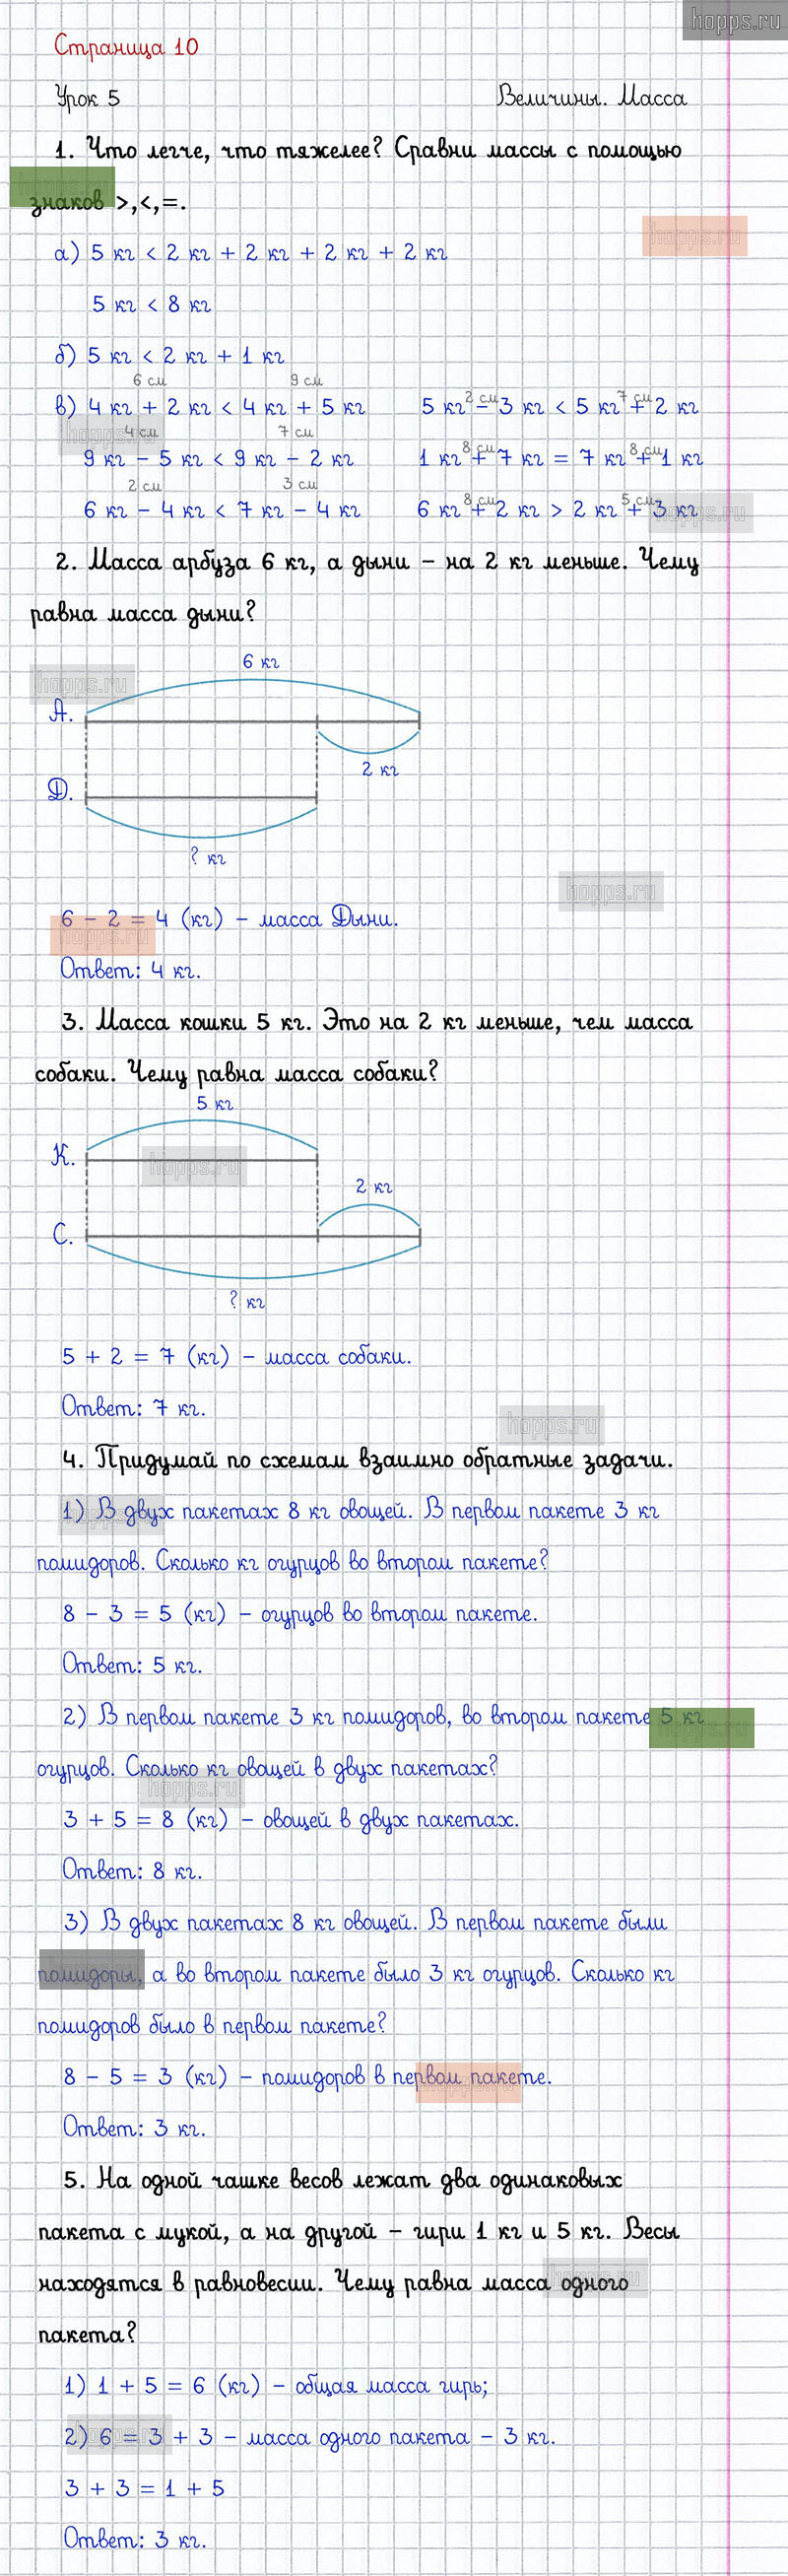 hopps.ru
Страница 10
Урок 5 Величины. Масса
1. Что легче, что тяжелее? Сравни массы с помощью
hopps.ru
знаков >,<,=.
hopps.ru
а) 5 кг < 2 кг + 2 кг + 2 кг + 2 кг
5 кг < 8 кг
б) 5 кг < 2 кг + 1 кг
6 см 9 см 2 см 7 см
в) 4 кг + 2 кг < 4 кг + 5 кг 5 кг - 3 кг < 5 кг + 2 кг
hopps.ru
4 см 7 см 8 см 8 см
9 кг - 5 кг < 9 кг - 2 кг 1 кг + 7 кг = 7 кг + 1 кг
2 см 3 см 8 см 5 см
6 кг - 4 кг < 7 кг - 4 кг 6 кг + 2 кг > 2 кг + 3 кг
hopps.ru
2. Масса арбуза 6 кг, а дыни - на 2 кг меньше. Чему
равна масса дыни?
hopps.ru
6 кг
А.
2 кг
Д.
? кг
hopps.ru
6 - 2 = 4 (кг) - масса Дыни.
hopps.ru
Ответ: 4 кг.
3. Масса кошки 5 кг. Это на 2 кг меньше, чем масса
собаки. Чему равна масса собаки?
5 кг
К.
hopps.ru
2 кг
С.
? кг
5 + 2 = 7 (кг) - масса собаки.
Ответ: 7 кг.
hopps.ru
4. Придумай по схемам взаимно обратные задачи.
1) В двух пакетах 8 кг овощей. В первом пакете 3 кг
hopps.ru
помидоров. Сколько кг огурцов во втором пакете?
8 - 3 = 5 (кг) - огурцов во втором пакете.
Ответ: 5 кг.
2) В первом пакете 3 кг помидоров, во втором пакете 5 кг
hopps.ru
огурцов. Сколько кг овощей в двух пакетах?
hopps.ru
3 + 5 = 8 (кг) - овощей в двух пакетах.
Ответ: 8 кг.
3) В двух пакетах 8 кг овощей. В первом пакете были
помидоры, а во втором пакете было 3 кг огурцов. Сколько кг
помидоров было в первом пакете?
8 - 5 = 3 (кг) - помидоров в первом пакете.
hopps.ru
Ответ: 3 кг.
5. На одной чашке весов лежат два одинаковых
пакета с мукой, а на другой - гири 1 кг и 5 кг. Весы
находятся в равновесии. Чему равна масса одного
hopps.ru
пакета?
1) 1 + 5 = 6 (кг) - общая масса гирь;
2) 6 = 3 + 3 - масса одного пакета - 3 кг.
hopps.ru
3 + 3 = 1 + 5
Ответ: 3 кг.